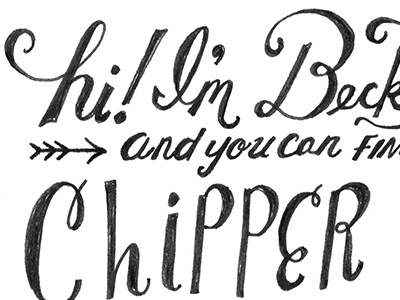 hi! I'm Beck
and you can FIN
ChIPPER